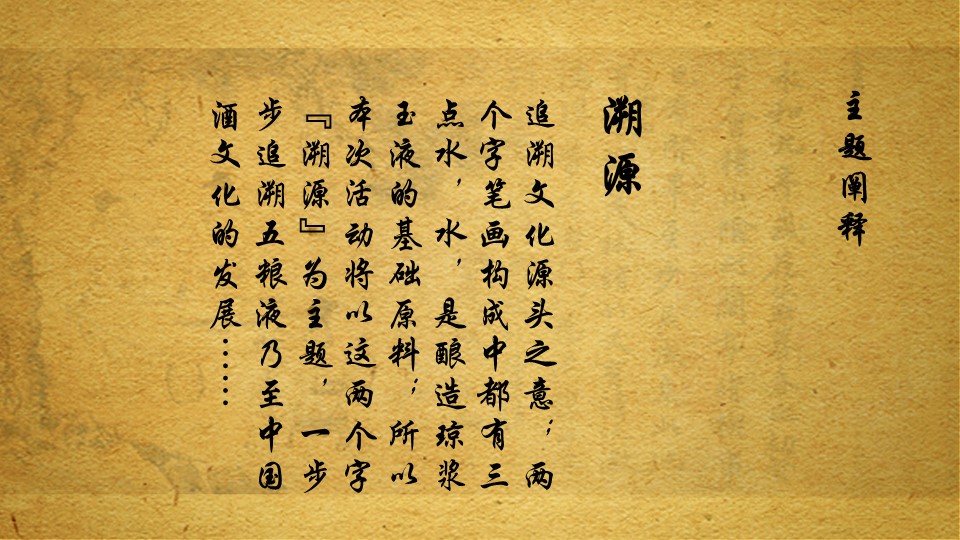 主题阐释
溯源
追溯文化源头之意；两
个字笔画构成中都有三
点水，水，是酿造琼浆
玉液的基础原料；所以
本次活动将以这两个字
『溯源』为主题，一步
步追溯五粮液乃至中国
酒文化的发展……